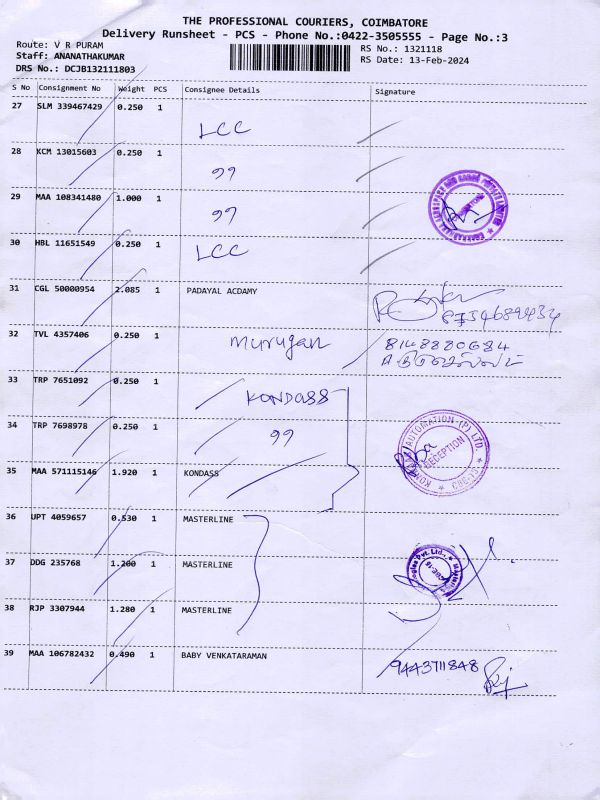 THE PROFESSIONAL COURIERS, COIMBATORE
Delivery Runsheet - PCS - Phone No.:0422-3505555 - Page No.:3
Route: V R PURAM
Staff: ANANATHAKUMAR
DRS No.: DCJB132111803
RS No.: 1321118
RS Date: 13-Feb-2024
S No Consignment No Weight PCS Consignee Details Signature
27 SLM 339467429 0.250 1 LCC
28 KCM 13015603 0.250 1 ,,
29 MAA 108341480 1.000 1 ,,
30 HBL 11651549 0.250 1 LCC
31 CGL 50000954 2.085 1 PADAYAL ACDAMY
8754689434
32 TVL 4357406 0.250 1 murugan 8148880684
33 TRP 7651092 0.250 1 KONDASS
34 TRP 7698978 0.250 1 ,,
AUTOMATION (P) LTD.
RECEPTION
35 MAA 571115146 1.920 1 KONDASS
36 UPT 4059657 0.530 1 MASTERLINE
37 DDG 235768 1.200 1 MASTERLINE
38 RJP 3307944 1.280 1 MASTERLINE
39 MAA 106782432 0.490 1 BABY VENKATARAMAN 9443711848